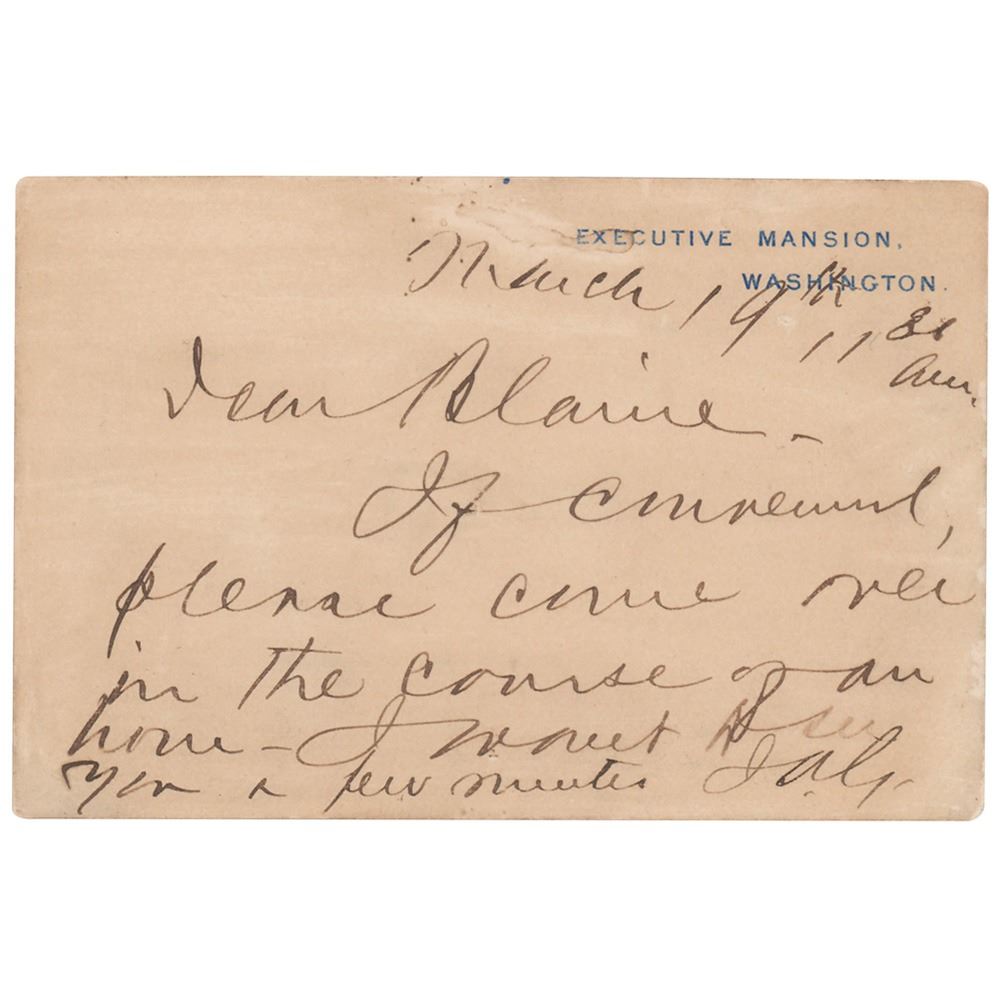 EXECUTIVE MANSION,
WASHINGTON.
March 19th
11 30
am.
Dear Blaine -
If convenient,
please come over
in the course of an
hour - I want to see
you a few minutes J.A.G.